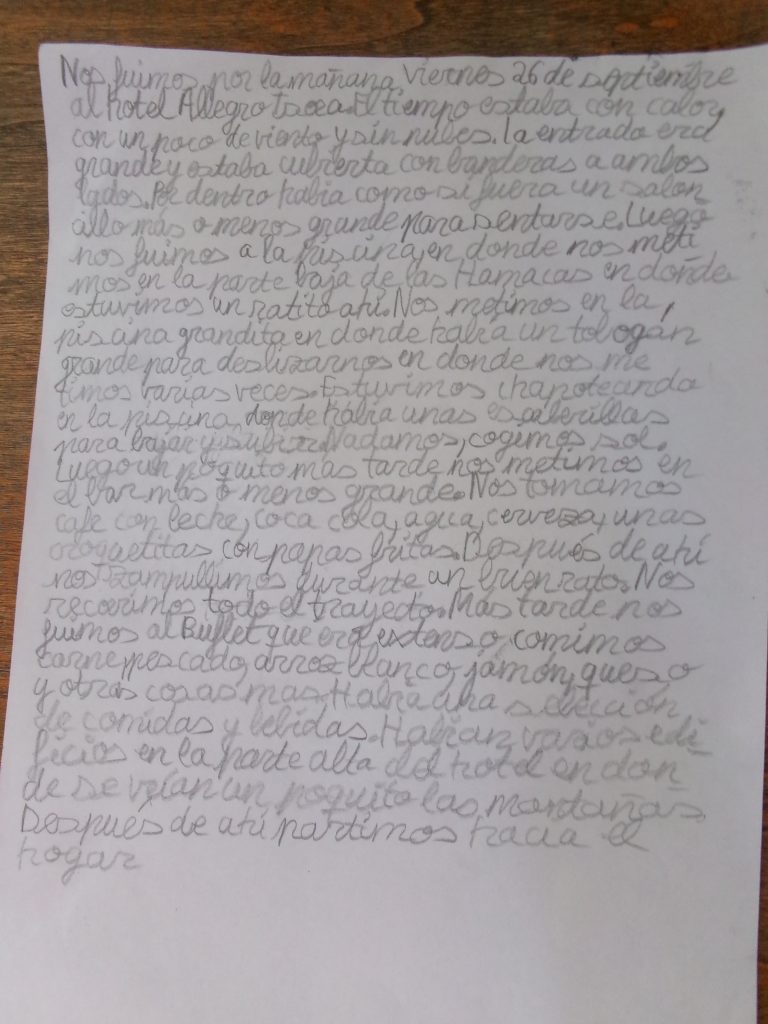 Nos fuimos por la mañana Viernes 26 de septiembre
al hotel Allegro Isora. El tiempo estaba con calor,
con un poco de viento y sin nubes. La entrada era
grande y estaba cubierta con banderas a ambos
lados. Por dentro había como si fuera un salon
cillo más o menos grande para sentarse. Luego
nos fuimos a la piscina, en donde nos meti
mos en la parte baja de las Hamacas en donde
estuvimos un ratito ahí. Nos metimos en la
piscina grandita en donde había un tobogán
grande para deslizarnos en donde nos me
timos varias veces. Estuvimos chapoteando
en la piscina, donde había unas escalerillas
para bajar y subir. Nadamos, cogimos sol.
Luego un poquito más tarde nos metimos en
el bar más o menos grande. Nos tomamos
cafe con leche, coca cola, agua, cerveza, unas
croquetitas con papas fritas. Después de ahí
nos zampullimos durante un buen rato. Nos
recorrimos todo el trayecto. Más tarde nos
fuimos al Buffet que era extenso, comimos
carne, pescado, arroz blanco, jámón, queso
y otras cosas mas. Había una selección
de comidas y bebidas. Habían varios edi_
ficios en la parte alta del hotel en don
de se veían un poquito las montañas.
Después de ahí partimos hacia el
hogar